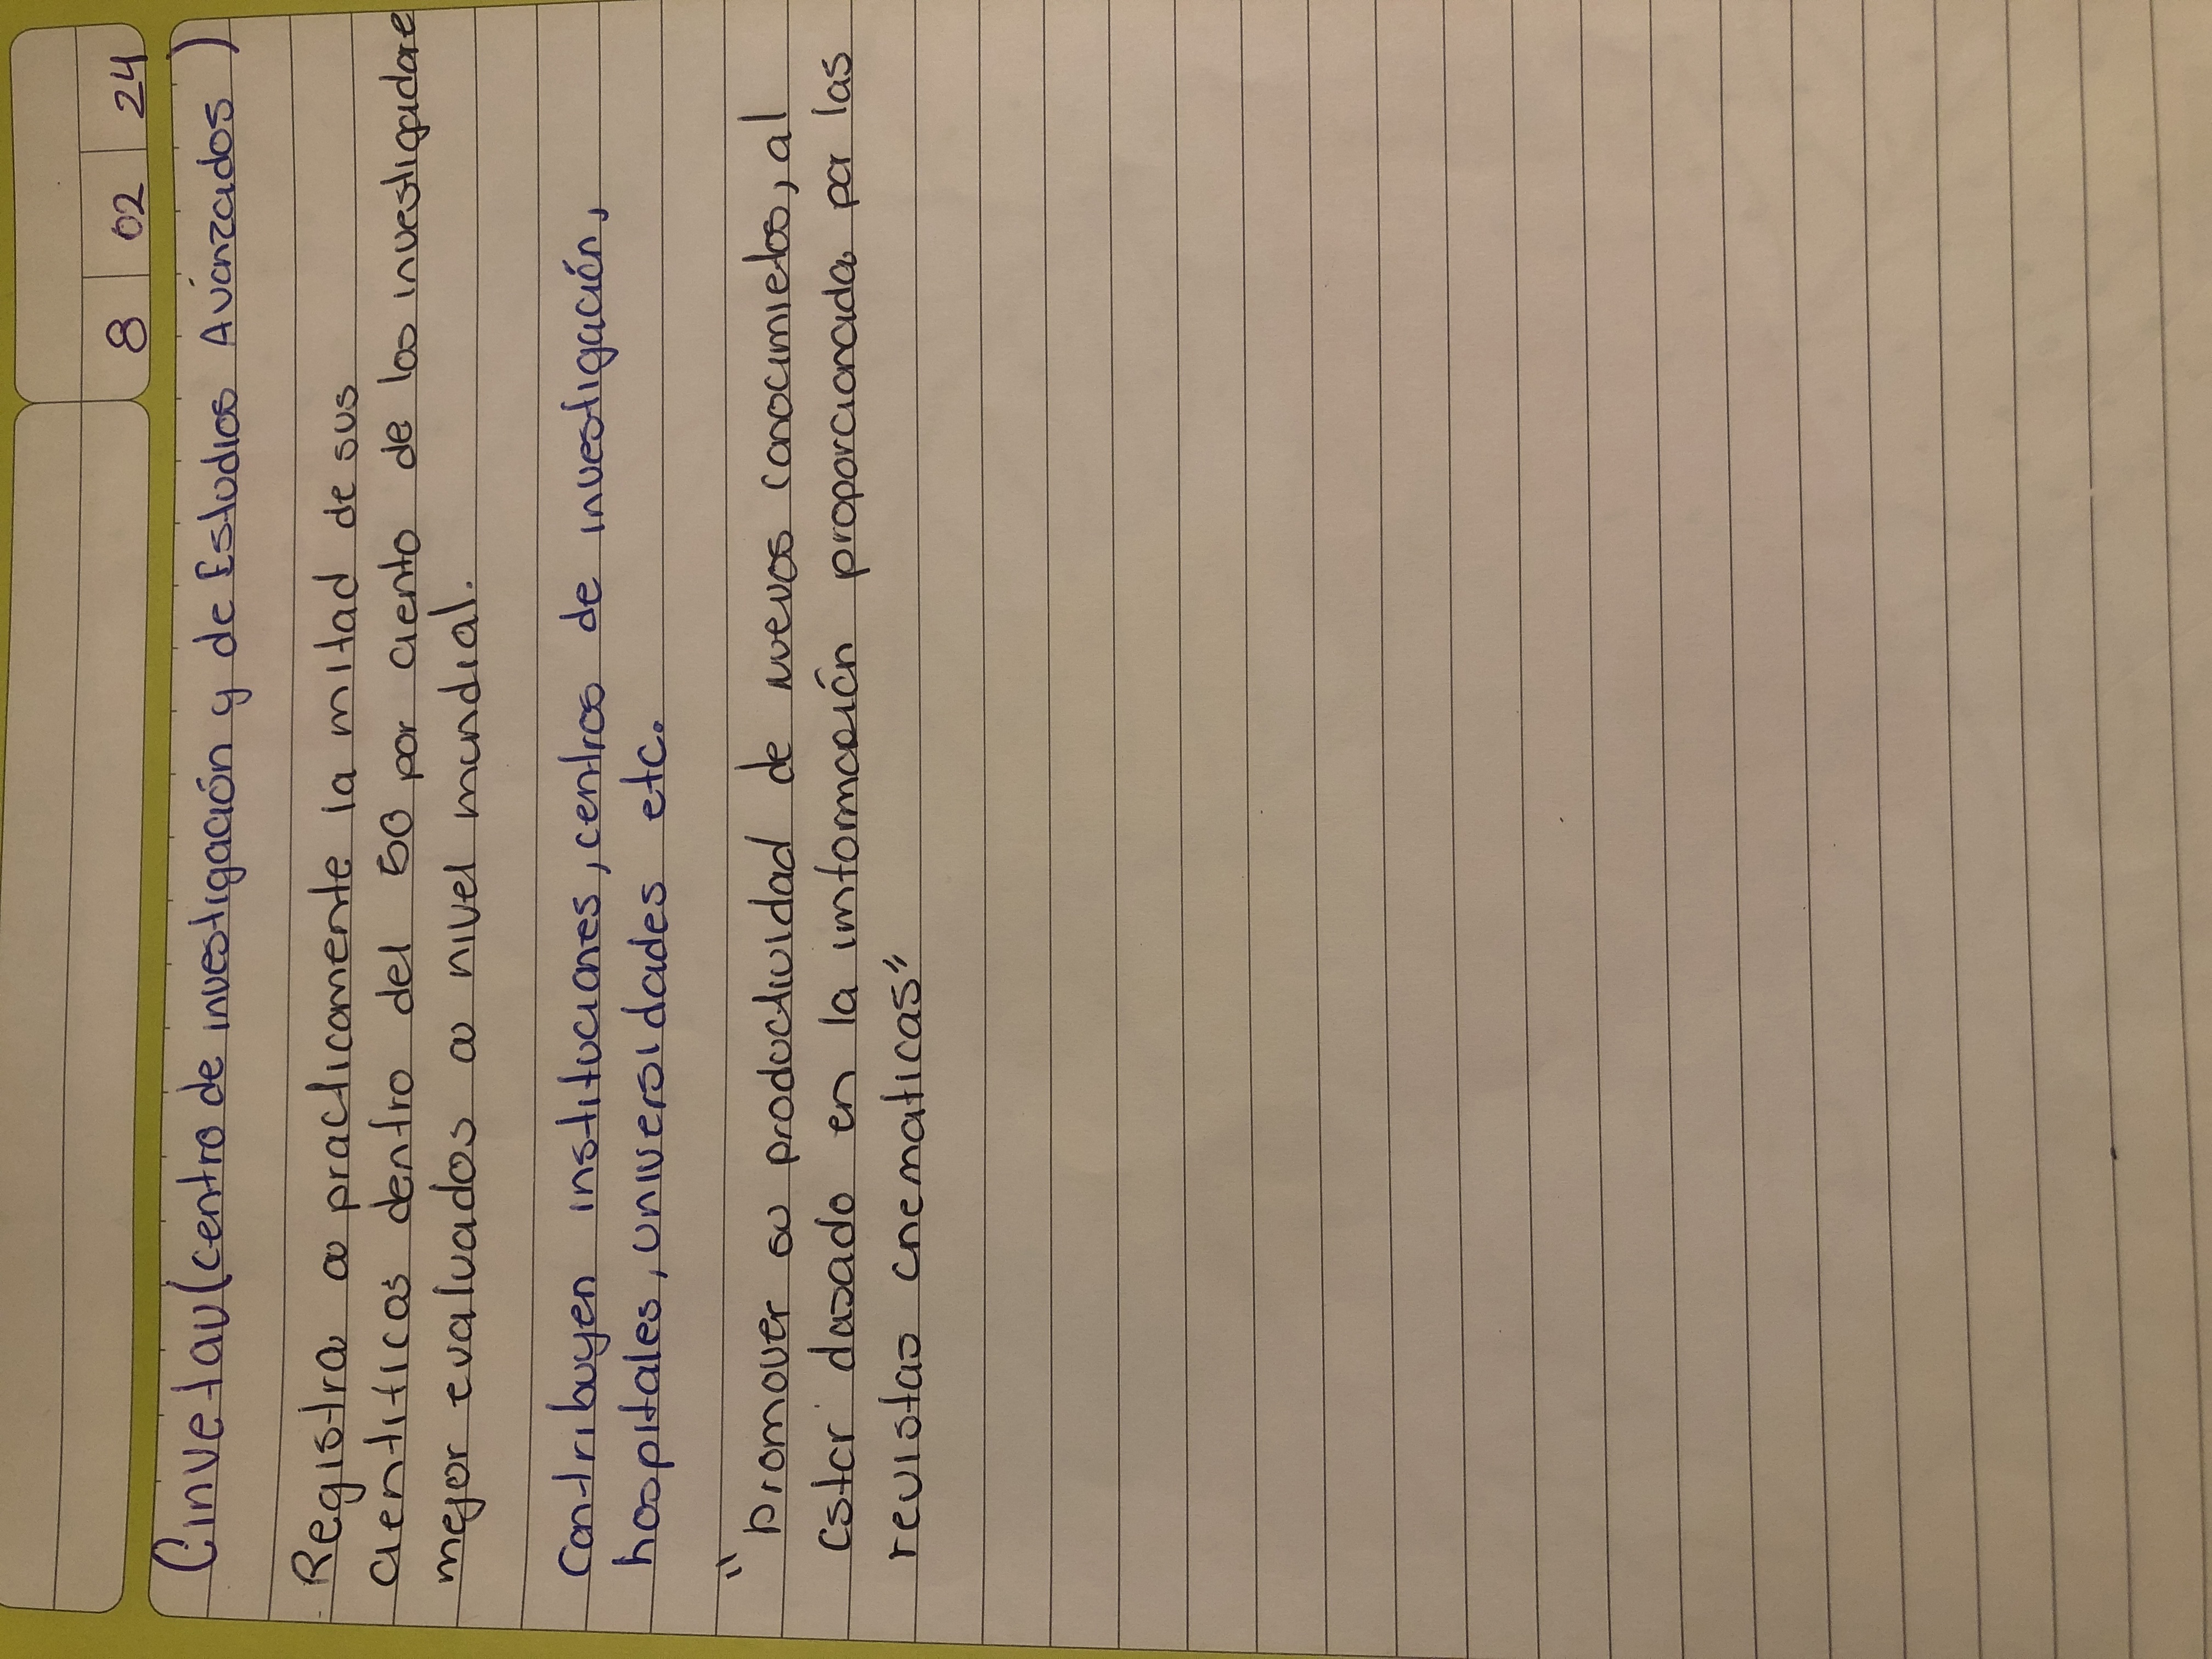 8 02 24
Cinvetav (centro de investigación y de Estudios Avanzados)
Registra a practicamente la mitad de sus
cientificos dentro del 50 por ciento de los investigadore
mejor evaluados a nivel mundial.
Contribuyen instituciones, centros de investigación,
hospitales, universidades etc.
"promover su productividad de nuevos conocimietos, al
estar basado en la imformación proporcionada por las
revistas cnematicas"